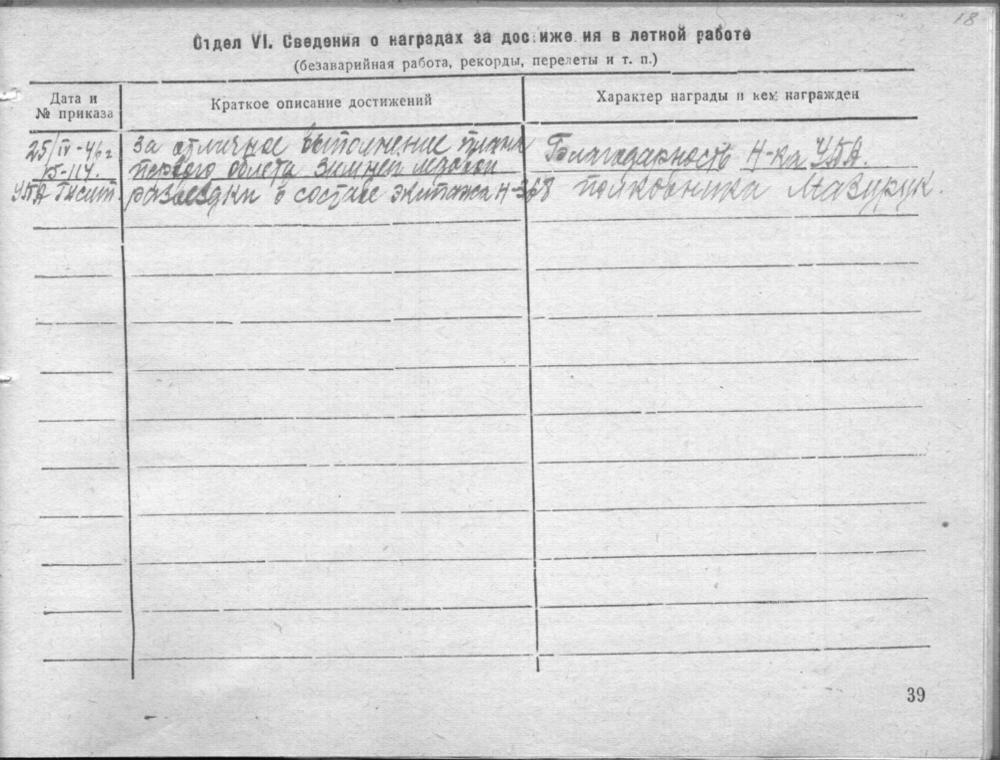 18
Отдел VI. Сведения о наградах за дос иже ия в летной работе
(безаварийная работа, рекорды, перелеты и т. п.)
Дата и
№ приказа
Краткое описание достижений
Характер награды и кем награжден
25/IV-46 г
№-114.
УПА
за отличное выполнение плана
первого облета зимней ледовой
разведки в составе экипажа Н-368
Благодарность Н-ка УПА.
полковника Мазурук.
39